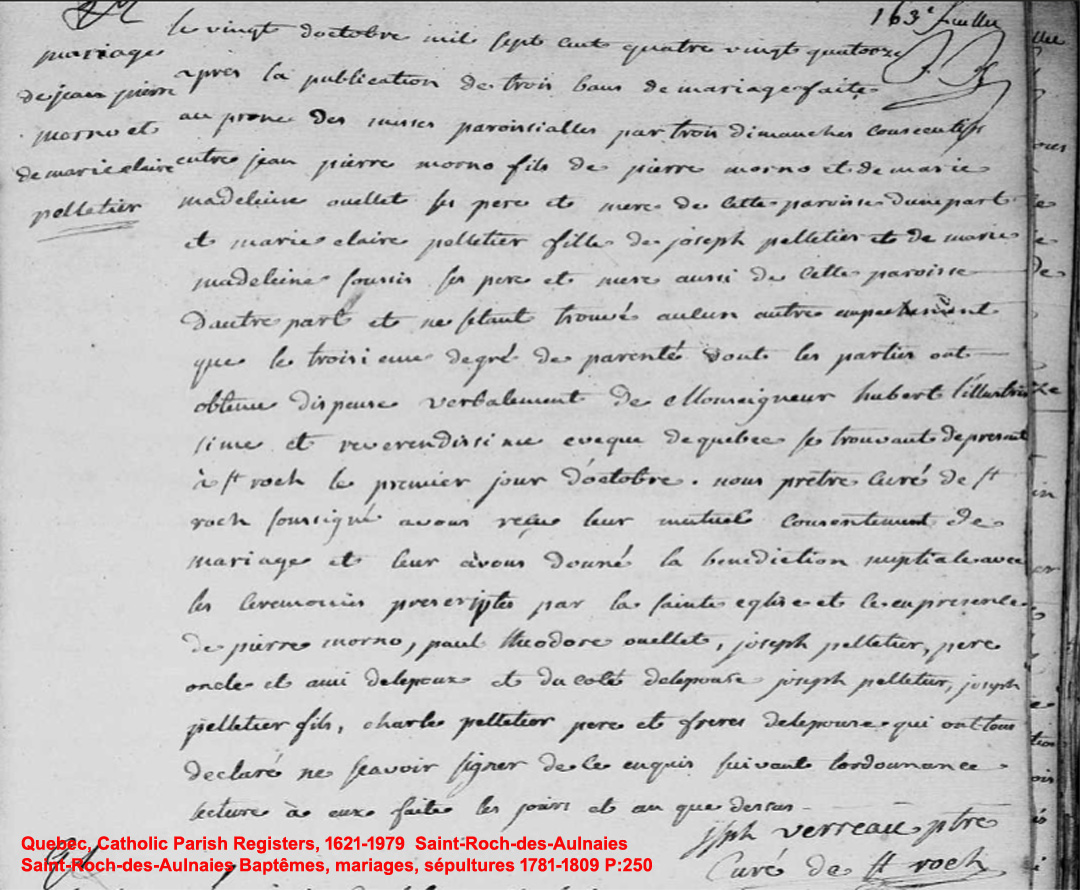 163e feuillet
mariage
de jean pierre
morno et
de marie claire
pelletier
le vingt doctobre mil sept cent quatre vingt quatorze
apres la publication de trois bans de mariage faite
au prone des messes paroissialles par trois dimanches consecutifs
entre jean pierre morno fils de pierre morno et de marie
madeleine ouellet ses pere et mere de cette paroisse dune part
et marie claire pelletier fille de joseph pelletier et de marie
madeleine soussis ses pere et mere aussi de cette paroisse
dautre part et ne setant trouvé aucun autre empechement
que le troisieme degré de parenté dont les parties ont
obtenu dispense verbalement de Monseigneur hubert lillustris
sime et reverendissime eveque de quebec se trouvant depresent
à st roch le premier jour doctobre. nous pretre curé de st
roch soussigné avons reçu leur mutuel consentement de
mariage et leur avons donné la benediction nuptiale avec
les ceremonies prescriptes par la sainte eglise et ce en presence
de pierre morno, paul theodore ouellet, joseph pelletier, pere
oncle et ami delepoux et du coté delepouse joseph pelletier, joseph
pelletier fils, charle pelletier pere et freres delepouse qui ont tous
declaré ne scavoir signer de ce enquis suivant lordonnance
lecture à eux faite les jours et an que dessus
jsph verreau ptre
Curé de st roch
Quebec, Catholic Parish Registers, 1621-1979 Saint-Roch-des-Aulnaies
Saint-Roch-des-Aulnaies Baptêmes, mariages, sépultures 1781-1809 P:250